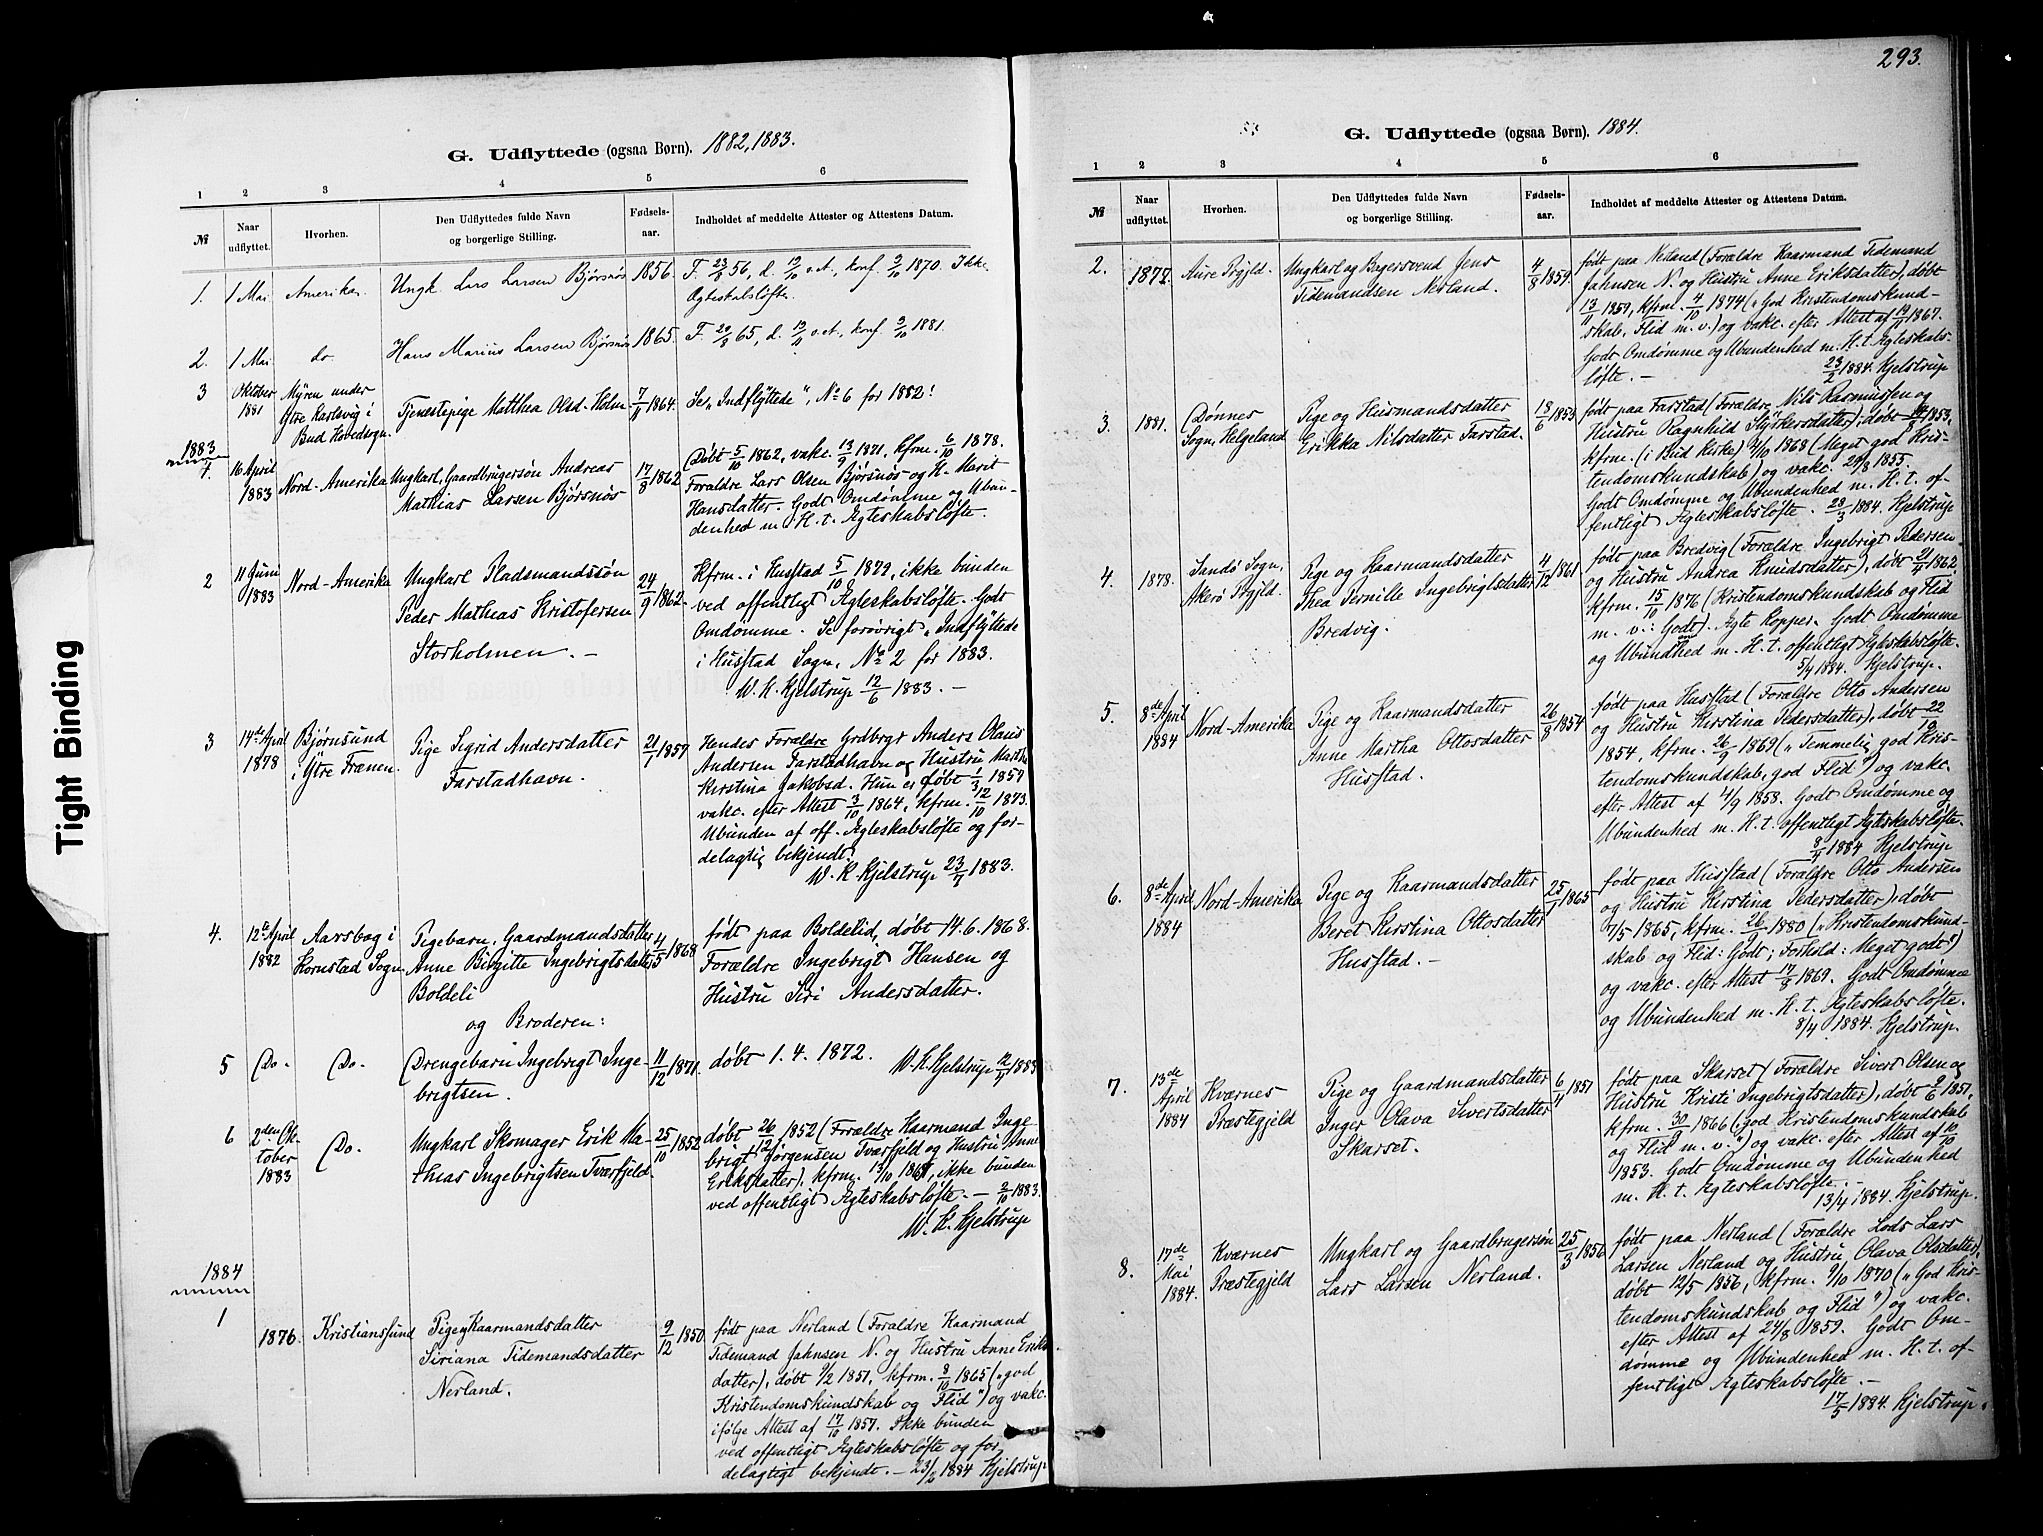 Tight Binding
G. Udflyttede (ogsaa Børn). 1882, 1883.
1 2 3 4 5 6
№ Naar udflyttet. Hvorhen. Den Udflyttedes fulde Navn og borgerlige Stilling. Fødsels-aar. Indholdet af meddelte Attester og Attestens Datum.
1. 1 Mai Amerika. Ungk. Lars Larsen Bjørsnøs 1856. F. 23/8 56, d. 19/10 s.A., konf. 9/10 1870. Ikke
Ægteskabsløfte.
2. 1 Mai do. Hans Marius Larsen Bjørsnøs 1865. F. 29/8 65, d. 19/11 s.A., konf. 9/10 1881.
3 Oktober 1881 Myren under Ytre Karlsvig i Bud Hovedsogn. Tjenestepige Matthea Olsd. Holm 7/11 1864. Se „Indflyttede", No 6 for 1882!
1883
1. 16 April 1883 Nord-Amerika Ungkarl, Gaardbrugersøn Andreas Mathias Larsen Bjørsnøs 17/8 1862 Døbt 5/10 1862, vakc. 13/9 1871, kfrm. 6/10 1878.
Forældre Lars Olsen Bjørsnøs og H. Marit
Hansdatter. Godt Omdømme og Ubun-
denhed m. H. t. Ægteskabsløfte.
2 11 Juni 1883 Nord-Amerika Ungkarl Pladsmandssøn Peder Mathias Kristofersen Storholmen. — 24/9 1862 Kfrm. i Husstad 5/10 1879, ikke bunden
ved offentligt Ægteskabsløfte. Godt
Omdømme. Se forøvrigt „Indflyttede
i Husstad Sogn, No 2 for 1883.
W. K. Kjelstrup 12/6 1883. —
3 14de April 1878 Bjørnsund i Ytre Frænen. Pige Sigrid Andersdatter Farstadhavn. 21/1 1857 Hendes Forældre Grdbrgr Anders Olaus
Andersen Farstadhavn og Hustru Martha
Kerstina Jakobsd. Hun er døbt 1/3 1857
vakc. efter Attest 3/10 1864, kfrm. 12/10 1873.
Ubunden af off. Ægteskabsløfte og for-
delagtig bekjendt.
W. K. Kjelstrup 23/7 1883.
4. 12te April 1882 Aarsbog i Kornstad Sogn Pigebarn, Gaardmandsdatter Anne Birgitte Ingebrigtsdatter Boldeli 4/5 1868 født paa Boldelid, døbt 14.6.1868.
Forældre Ingebrigt Hansen og
Hustru Siri Andersdatter.
og Broderen:
5 Do. Do. Drengebarn Ingebrigt Ingebrigtsen. 11/12 1871. døbt 1. 4. 1872. W. K. Kjelstrup 12/4 1883
6 2den Oktober 1883 Do. Ungkarl Skomager Erik Mathias Ingebrigtsen Tværfjeld. 25/10 1852 døbt 26/12 1852 (Forældre Kaarmand Inge-
brigt Jørgensen Tværfjeld og Hustru Anne
Eriksdatter), kfrm. 13/10 1867, ikke bunden
ved offentligt Ægteskabsløfte. — 2/10 1883.
W. K. Kjelstrup
1884
1 1876. Kristianssund Pige og Kaarmandsdatter Siriana Tidemandsdatter Nerland. 9/12 1850 født paa Nerland (Forældre Kaarmand
Tidemand Jahnsen N. og Hustru Anne Eriks-
datter), døbt 9/2 1851, kfrm. 8/10 1865 („god
Kristendomskundskab og Flid") og vakc.
ifølge Attest af 17/10 1857. Ikke bunden
ved offentligt Ægteskabsløfte og for-
delagtigt bekjendt. — 23/2 1884 Kjelstrup
293.
G. Udflyttede (ogsaa Børn). 1884.
1 2 3 4 5 6
№ Naar udflyttet. Hvorhen. Den Udflyttedes fulde Navn og borgerlige Stilling. Fødsels-aar. Indholdet af meddelte Attester og Attestens Datum.
2. 1877. Aure Prgjld. Ungkarl og Bagersvend Jens Tidemandsen Nerland. 4/8 1859. født paa Nerland (Forældre Kaarmand Tidemand
Jahnsen N. og Hustru Anne Eriksdatter), døbt
13/11 1859, kfrm. 4/10 1874 („God Kristendomskund-
skab, Flid m. v.) og vakc. efter Attest af 14/11 1867.
Godt Omdømme og Ubundenhed m. H. t. Ægteskabs-
løfte. — 23/2 1884. Kjelstrup
3. 1881. Dønnes Sogn, Helgeland Pige og Husmandsdatter Erikka Nilsdatter Farstad. 18/6 1853 født paa Farstad (Forældre Nils Rasmussen og
Hustru Ragnhild Styrkersdatter), døbt 1853,
kfrm. (i Bud Kirke) 4/10 1868 (Meget god Kris-
tendomskundskab) og vakc. 29/8 1855.
Godt Omdømme og Ubundenhed m. H. t. of-
fentligt Ægteskabsløfte. 28/3 1884. Kjelstrup
4. 1878. Sandø Sogn, Akerø Prgjld. Pige og Kaarmandsdatter Thea Pernille Ingebrigtsdatter Bredvig. 4/12 1861 født paa Bredvig (Forældre Ingebrigt Pedersen
og Hustru Andrea Knudsdatter), døbt 21/4 1862,
kfrm. 15/10 1876 (Kristendomskundskab og Flid
m. v.: Godt). Ægte Kopper. Godt Omdømme
og Ubundhed m. H. t. offentligt Ægteskabsløfte.
5/4 1884. Kjelstrup.
5. 8de April 1884 Nord-Amerika Pige og Kaarmandsdatter Anne Martha Ottosdatter Husstad. 26/8 1854 født paa Husstad (Forældre Otto Andersen
og Hustru Kerstina Pedersdatter), døbt 22/10
1854, kfrm. 26/9 1869 („Temmelig god Kris-
tendomskundskab, god Flid") og vakc.
efter Attest af 4/9 1858. Godt Omdømme og
Ubundenhed m. H. t. offentligt Ægteskabsløfte.
8/4 1884 Kjelstrup
6. 8de April 1884 Nord-Amerika Pige og Kaarmandsdatter Beret Kerstina Ottosdatter Husstad. — 25/1 1865 født paa Husstad (Forældre Otto Andersen
og Hustru Kerstina Pedersdatter), døbt
7/5 1865, kfrm. 26/9 1880 („Kristendomskund-
skab og Flid: Godt; Forhold: Meget godt")
og vakc. efter Attest 17/8 1869. Godt Omdømme
og Ubundenhed m. H. t. Ægteskabsløfte.
8/4 1884. Kjelstrup.
7. 13de April 1884 Kværnes Præstegjeld Pige og Gaardmandsdatter Inger Olava Sivertsdatter Skarset. 6/4 1851 født paa Skarset (Forældre Sivert Olsen og
Hustru Kristi Ingebrigtsdatter), døbt 9/6 1851,
kfrm. 30/9 1866 (god Kristendomskundskab
og Flid m. v.") og vakc. efter Attest af 10/10
1853. Godt Omdømme og Ubundenhed
m. H. t. Ægteskabsløfte. —
13/4 1884. Kjelstrup.
8. 17de Mai 1884. Kværnes Præstegjeld Ungkarl og Gaardbrugersøn Lars Larsen Nerland. 25/3 1856 født paa Nerland (Forældre Lods Lars
Larsen Nerland og Hustru Olava Olsdatter),
døbt 12/5 1856, kfrm. 9/10 1870 („God Kris-
tendomskundskab og Flid") og vakc.
efter Attest af 24/8 1859. Godt Om-
dømme og Ubundenhed m. H. t. of-
fentligt Ægteskabsløfte. —
17/5 1884. Kjelstrup.